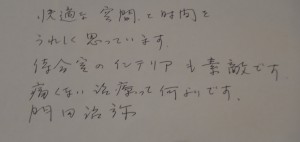 快適な空間と時間を
うれしく思っています。
待合室のインテリアも素敵です。
痛くない治療って何よりです。
門田治弥